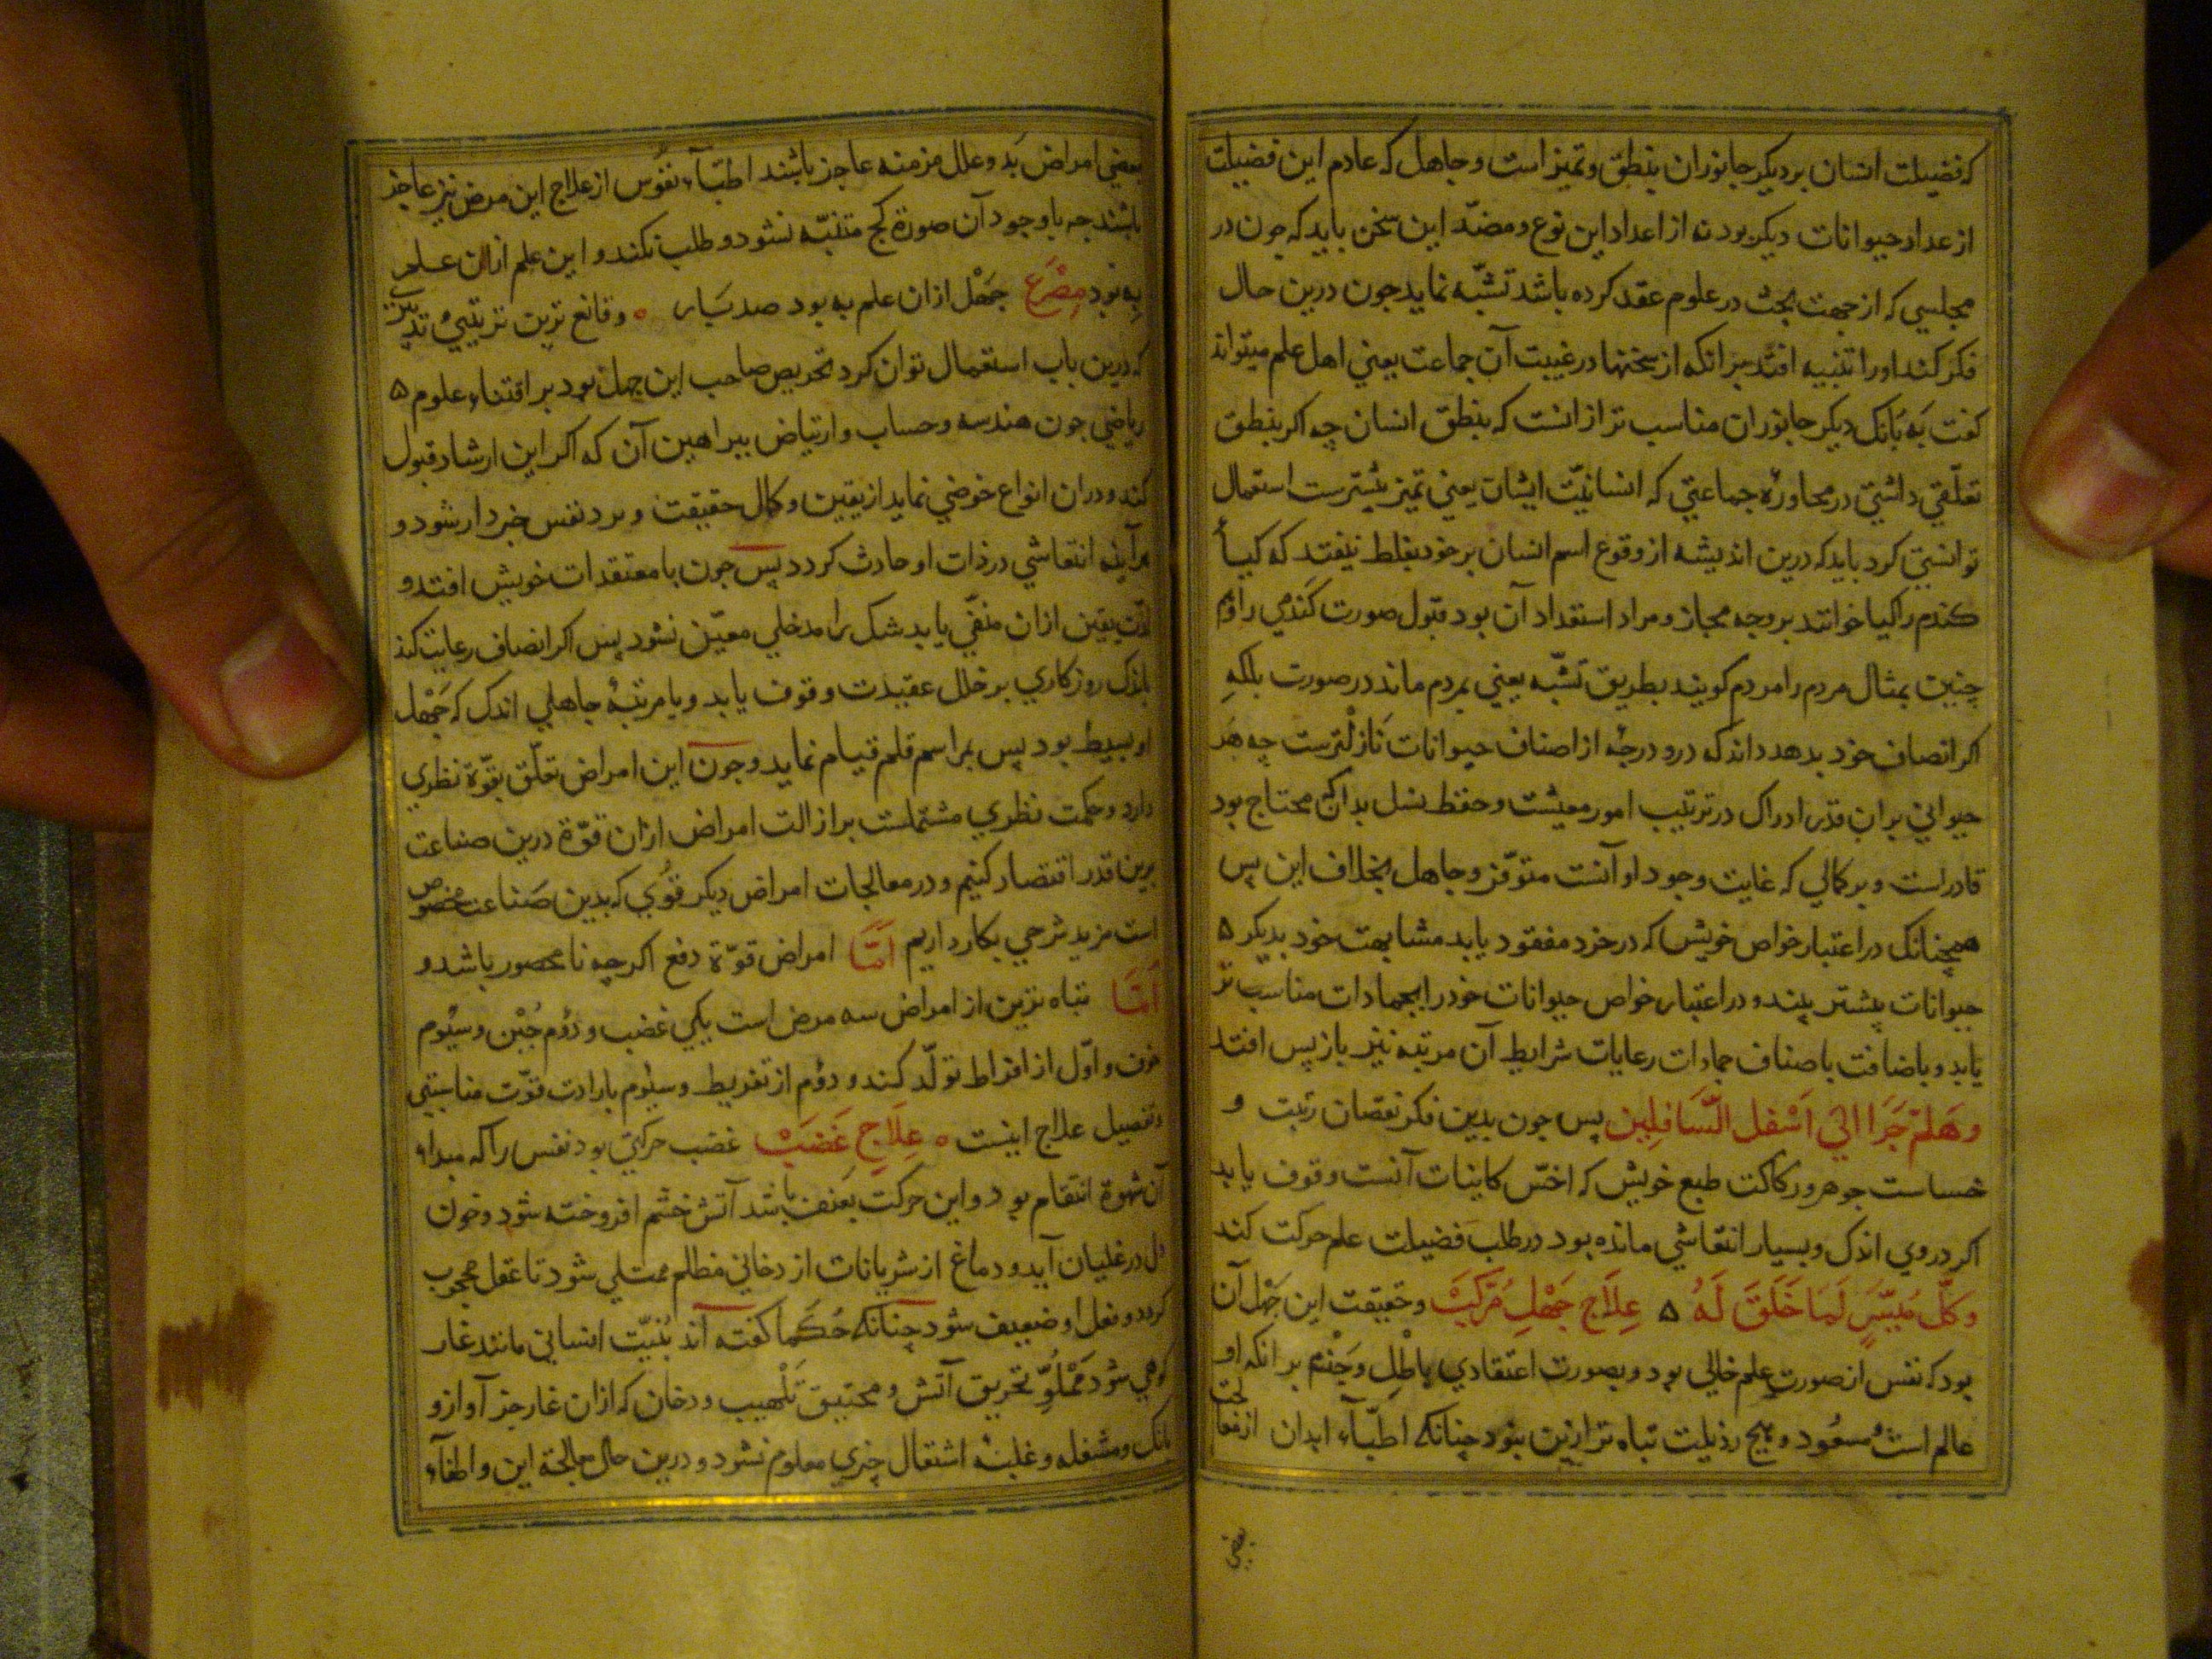 که فضیلت انسان بر دیکر جانوران بنطق و تمیز است و جاهل که عادم این فضیلت
از عداد حیوانات دیکر بود نه از اعداد این نوع و مصدّ این سخن باید که چون در
مجلسی که از جهت بحث در علوم عقد کرده باشد تشبّه نماید چون درین حال
فکر کند او را تنبیه افتد بر آنکه از سخنها در غیبت آن جماعت یعنی اهل علم میتواند
کفت به بانک دیکر جانوران مناسب تر از آنست که بنطق انسان چه اکر بنطق
تعلّقی داشتی در محاورهٔ جماعتی که انسانیّت ایشان یعنی تمیز بیشترست استعمال
توانستی کرد باید که درین اندیشه از وقوع اسم انسان بر خود بغلط نیفتد که کیاٴ
کندم را کیا خوانند بر وجه مجاز و مراد استعداد آن بود قبول صورت کندمی را و هم
چنین بمثال مردم را مردم کویند بطریق تشبّه یعنی بمردم ماند در صورت بلکه
اکر انصاف خود بدهد داند که در درجهٔ از اصناف حیوانات نازلترست چه هر
حیوانی بر آن قدر ادراک در ترتیب امور معیشت و حفظ نسل بدان محتاج بود
قادر است و بر کمالی که غایت وجود او آنست متوفّر و جاهل بخلاف این پس
همچنانک در اعتبار خواص خویش که در خود مفقود یابد مشابهت خود بدیکر ۵
حیوانات بیشتر بیند و در اعتبار خواص حیوانات خود را بجمادات مناسب تر
یابد و باضافت باصناف جمادات رعایات شرایط آن مرتبه نیز باز پس افتد
وَهَلُمَّ جَرًّا اِلَی اَسْفَلِ السَّافِلِینَ پس چون بدین فکر نقصان رتبت و
خساست جوهر و رکاکت طبع خویش که اخسّ کاینات آنست وقوف یابد
اکر در وی اندک و بسیار انتعاشی مانده بود در طلب فضیلت علم حرکت کند
وکلّ مُیَسَّرٍ لِمَا خُلِقَ لَهُ ۵ عِلَاجِ جَهْلِ مُرَکَّبْ و حقیقت این جهل آن
بود که نفس از صورت علم خالی بود و بصورت اعتقادی باطل و جزم بر آنکه او
عالم است مسعود و هیچ رذیلت تباه تر ازین نبود چنانکه اطبّاء ابدان از معالجت
بعضی
بعضی امراض بد و علل مزمنه عاجز باشند اطبّآء نفوس از علاج این مرض نیز عاجز
باشند چه با وجود آن صورة کج متنبّه نشود و طلب نکند و این علم از آن علم
به بود مِصْرَع جَهْل از ان علم به بود صد بار ه و قانع ترین تدبیر
که درین باب استعمال توان کرد تحریص صاحب این جهل بود بر اقتناء علوم ۵
ریاضی چون هندسه و حساب و ارتیاض ببراهین آن که اکر این ارشاد قبول
کند و در ان انواع خوضی نماید از یقین و کمال حقیقت و برد نفس خبردار شود و
هرآینه انتعاشی در ذات او حادث کردد پس چون با معتقدات خویش افتد و
لذّت یقین از ان منفی یابد شک را مدخلی معیّن شود پس اکر انصاف رعایت کند
باندک روزکاری بر خلل عقیدت وقوف یابد و با مرتبهٔ جاهلی اندک که جَهْل
او بسیط بود پس بمراسم قلم قیام نماید و چون این امراض تعلّق بقوّة نظری
دارد و حکمت نظری مشتملست بر ازالت امراض از ان قوّة درین صناعت
برین قدر اقتصار کنیم و در معالجات امراض دیکر قوی که بدین صناعت مخصوص
است مزید شرحی بکار داریم اَمَّا امراض قوّة دفع اکرچه نا محصور باشد و
اَمَّا تباه ترین از امراض سه مرض است یکی غضب و دوّم جُبْن و سیّوم
خوف و اوّل از افراط تولّد کند و دوّم از تفریط و سیّوم بارادت قوّت مناسبتی
و تفصیل علاج اینست ه عِلَاجِ غَضَبْ غضب حرکتی بود نفس را که مبداء
آن شهوة انتقام بود و این حرکت بعنف باشد آتش خشم افروخته شود و خون
دل در غلیان آید و دماغ از شریانات از دخانی مظلم ممتلی شود تا عقل محجوب
کردد و فعل او ضعیف شود چنانکه حُکَما کفته آند بُنیّت انسانی مانند غار
کوهی شود مَمْلُوّ بحریق آتش و محتبق تَلْهیب و دخان که از ان غار جز آواز و
بانک و مشغله و غلبهٔ اشتعال چیزی معلوم نشود و درین حال معالجهٔ این و اطفآء